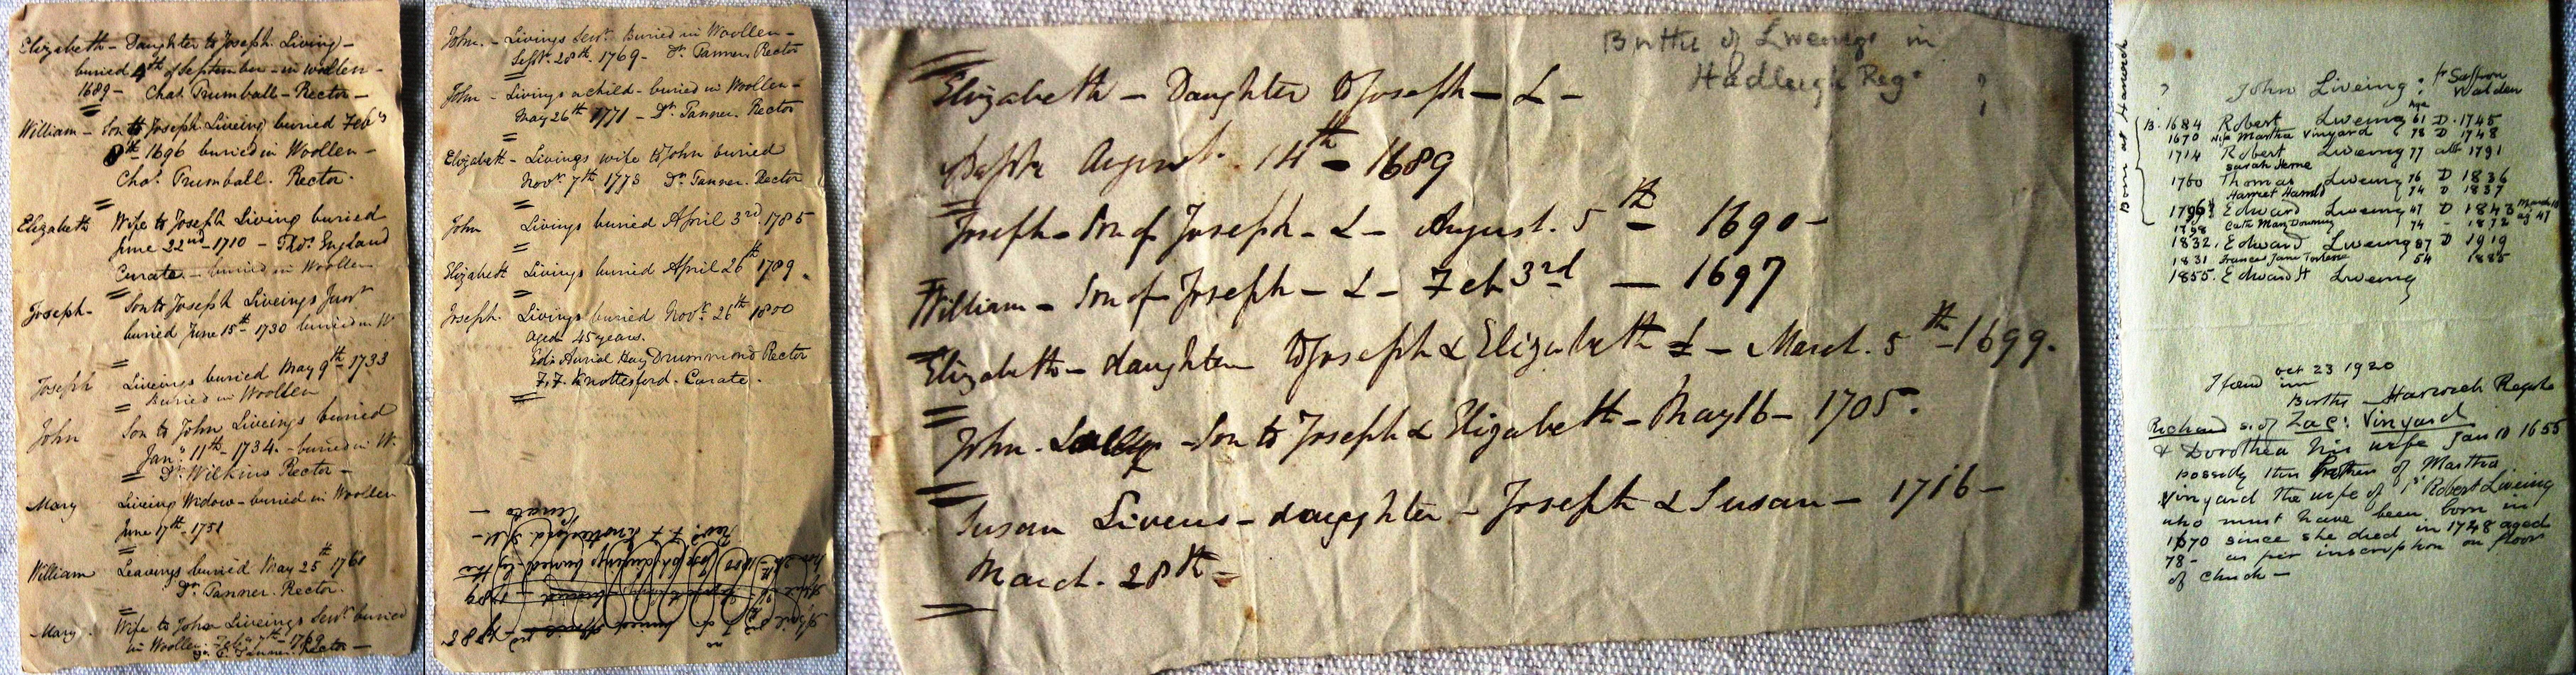 Elizabeth - Daughter to Joseph Living -
buried 4th of September - in woollen -
1689 - Chas. Trumball - Rector -
William - Son to Joseph Liveing buried Feby
8th 1696 buried in Woollen -
Chas. Trumball. Rector.
Elizabeth Wife to Joseph Living buried
June 22nd - 1710 - Thos. England
Curate - buried in Woollen
Joseph - Son to Joseph Liveings Junr
buried June 15th 1730 buried in W
Joseph Liveings buried May 9th 1733
Buried in Woollen
John Son to John Liveings buried
Jany 11th - 1734. - buried in W.
Dr. Wilkins Rector -
Mary Liveing Widow - buried in Woollen
June 17th 1751
William Leavings buried May 25th 1761
Dr. Tanner. Rector.
Mary. Wife to John Liveings Senr. buried
in Woollen. Feby 7th - 1769
Tanner. Rector -
John. - Livings Senr. Buried in Woollen -
Septr. 28th. 1769 - Dr. Tanner. Rector
John - Livings a child - buried in Woollen -
May 26th 1771 - Dr. Tanner. Rector
Elizabeth - Livings wife to John buried
Novr. 7th 1773 Dr. Tanner. Rector
John Livings buried April 3rd 1785
Elizabeth Livings buried April 26th 1789.
Joseph. Livings buried Novr. 26th 1800
aged 45 years.
Edd. Auriol Hay Drummond Rector
F. F. Knottesford. Curate.
Births of Liveings in
Hadleigh Regr ?
Elizabeth - Daughter to Joseph - L -
August. 14th - 1689
Joseph - Son of Joseph - L - August. 5th - 1690 -
William - Son of Joseph - L - Feb 3rd - 1697
Elizabeth - daughter to Joseph & Elizabeth L - March. 5th - 1699.
John. - Son to Joseph & Elizabeth - May 16 - 1705.
Susan Livens - daughter - Joseph & Susan - 1716 -
March. 28th -
Born at Harwich
? John Liveing : fr Saffron
Walden
Age
B. 1684 Robert Liveing 61 D. 1745
1670 Martha Vinyard 78 D 1748
1714 Robert Liveing 77 1791
Sarah Herne
1760 Thomas Liveing 76 D 1836
Harriet Harrold 74 D 1837
1796 Edward Liveing 47 D 1843 March 10
ag 47
1798 Cath Mary Downing 74 1872
1832. Edward Liveing 87 D 1919
1831 Frances Jane 54 1885
1855. Edward H Liveing
Oct 23 1920
I find in
Births - Harwich Register
Richard s. of Zac: Vinyard
& Dorothea his wife Jan 10 1655
possibly the brother of Martha
Vinyard the wife of 1st Robert Liveing
who must have been born in
1670 since she died in 1748 aged
78 - as per inscription on floor
of Church -